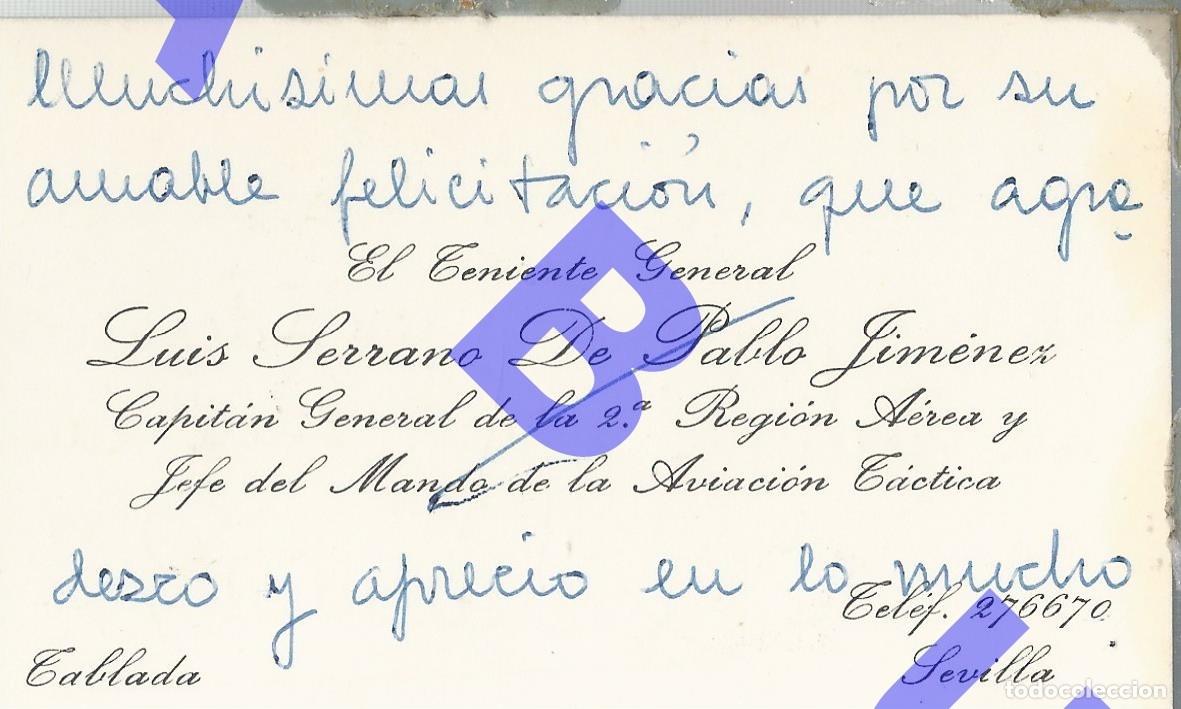 Muchisimas gracias por su
amable felicitación, que agra
El Teniente General
Luis Serrano De Pablo Jiménez
Capitán General de la 2.ª Región Aérea y
Jefe del Mando de la Aviación Táctica
dezco y aprecio en lo mucho
Teléf. 276670
Tablada
Sevilla
todocoleccion
B